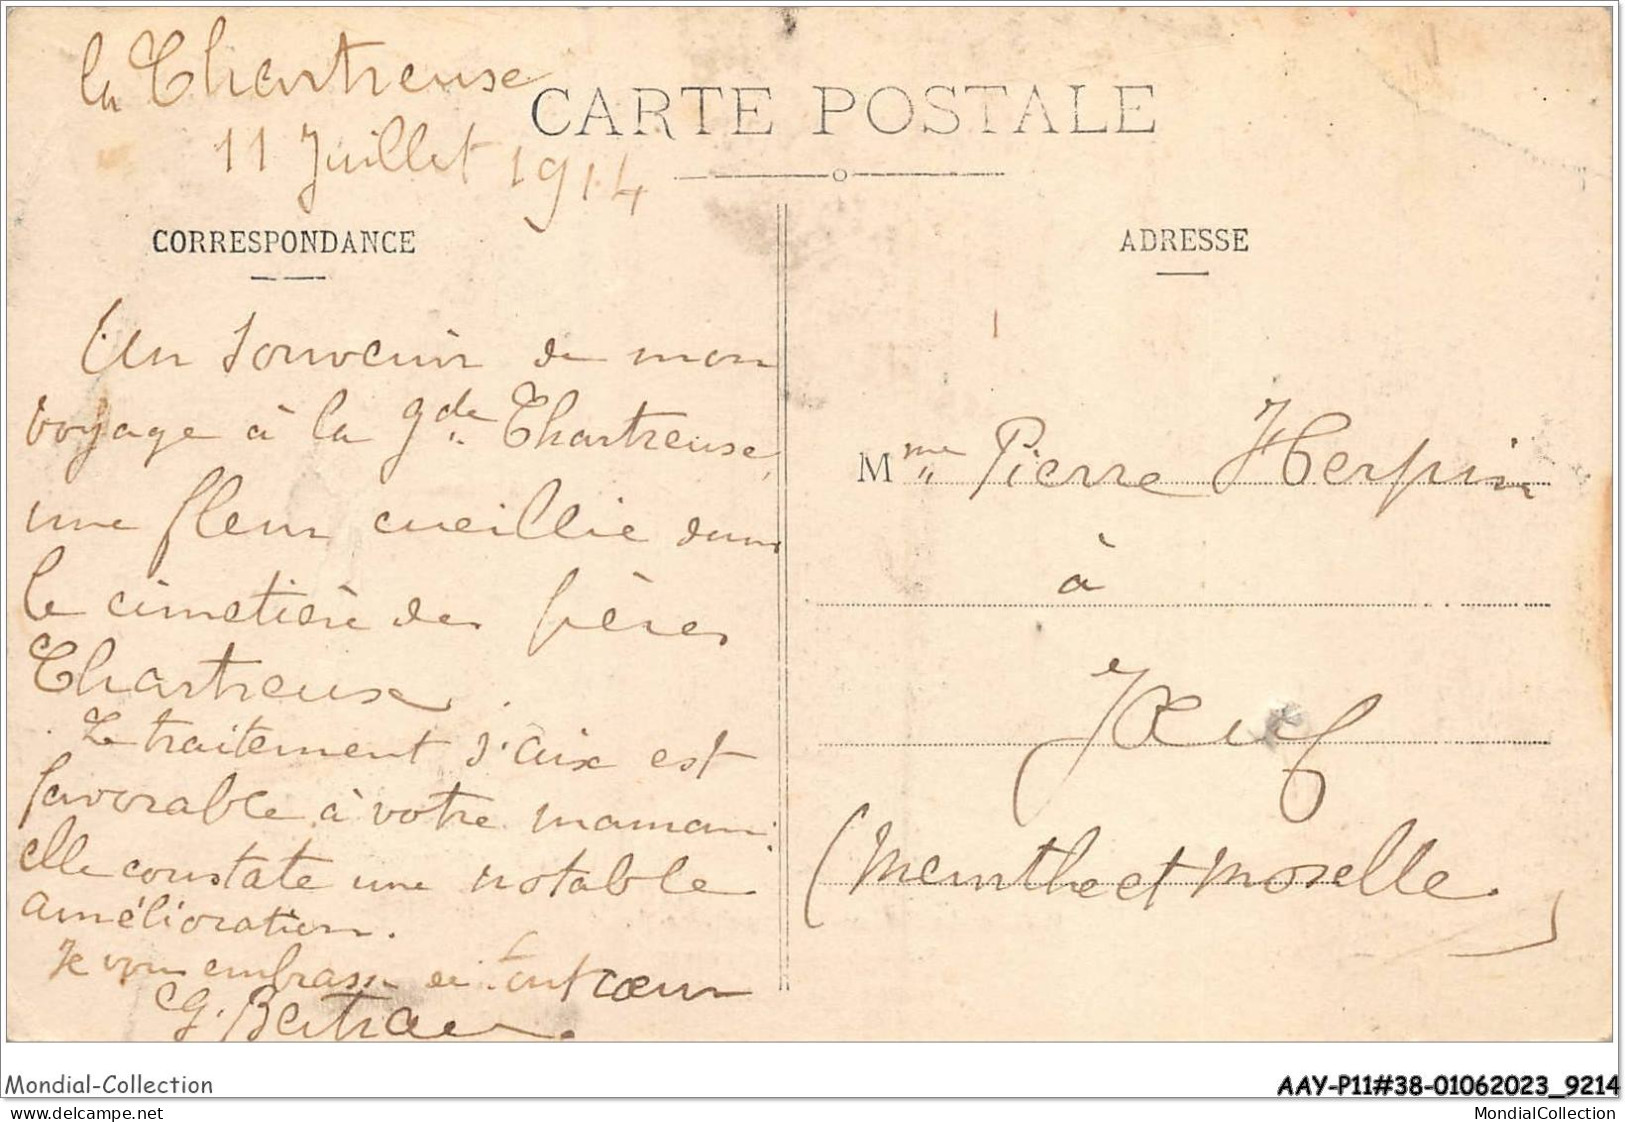 la Chartreuse
11 Juillet 1914
CARTE POSTALE
CORRESPONDANCE
Un Souvenir de mon
voyage à la Gde Chartreuse,
une fleur cueillie dans
le cimetière des frères
Chartreux.
Le traitement d'Aix est
favorable à votre maman;
elle constate une notable
amélioration.
Je vous embrasse de tout cœur
G. Bertrae
ADRESSE
Mme Pierre Herpin
à
Jœuf
(Meurthe et Moselle)
Mondial-Collection
AAY-P11#38-01062023_9214
delcampe.net
MondialCollection